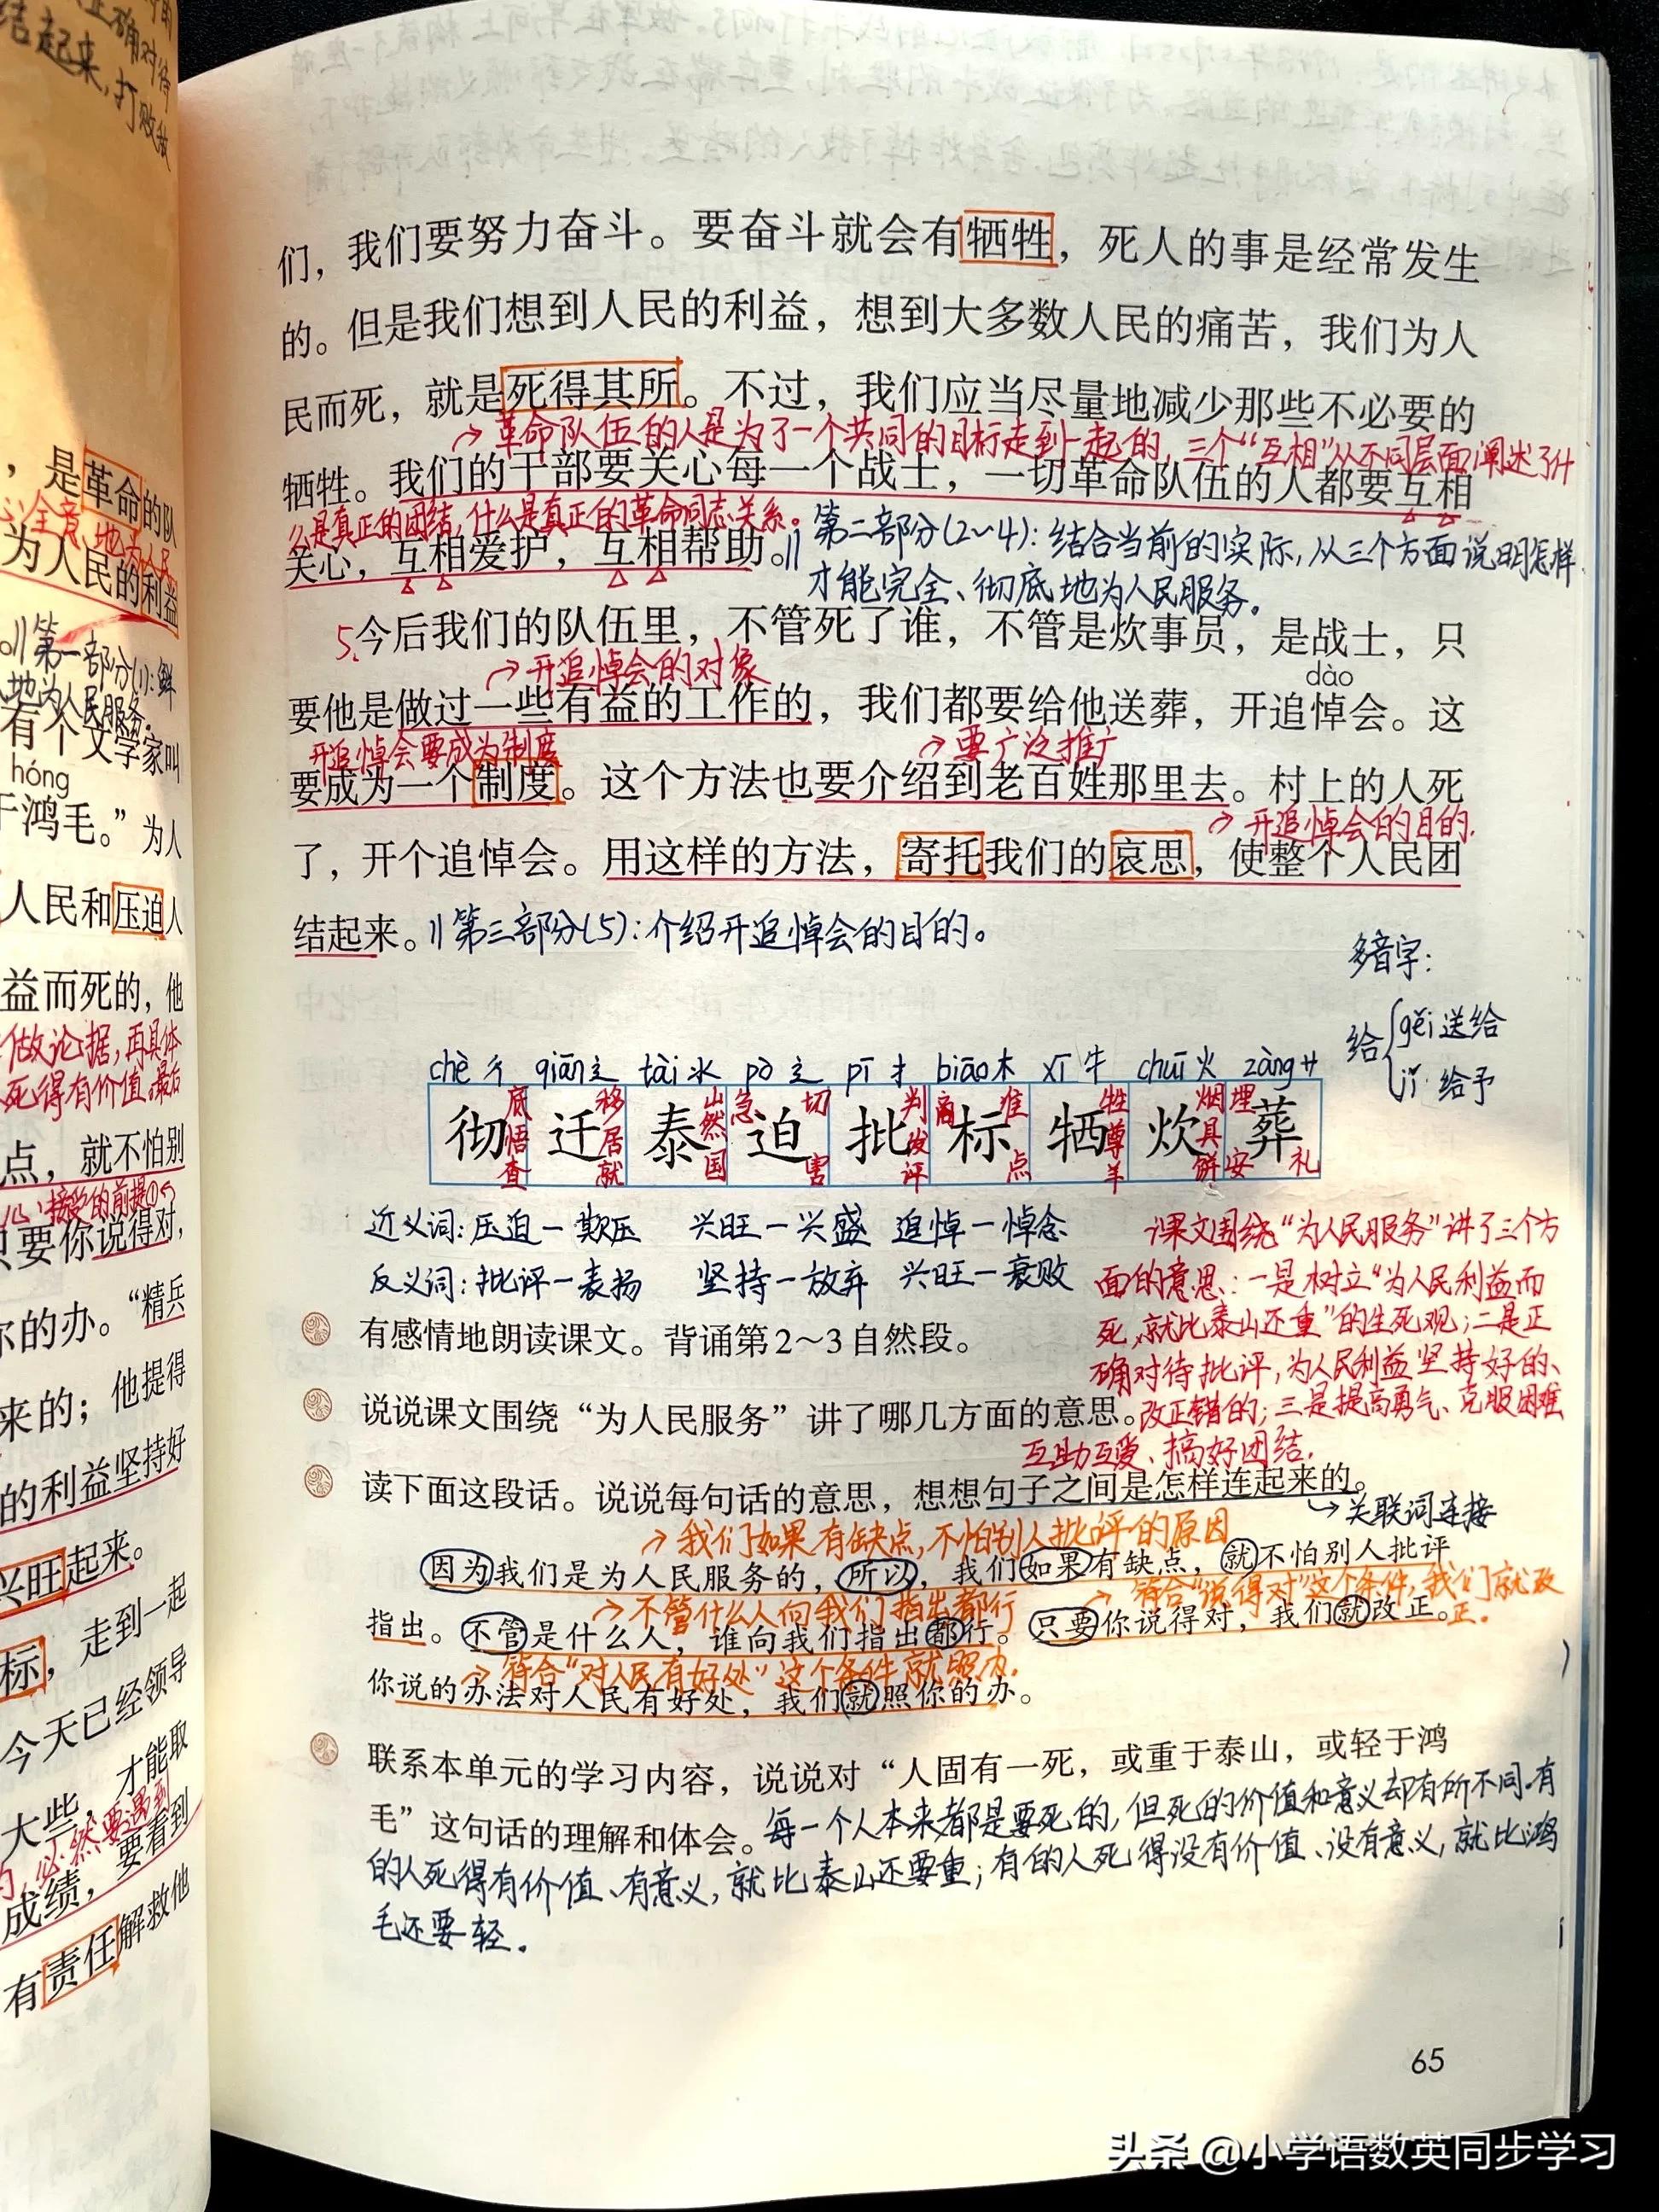 正确对待
结起来,打败敌
,是革命的队
为人民的利益
。‖第一部分(1):
地为人民服务。
有个文学家叫
hóng
于鸿毛。”为人
人民和压迫人
益而死的,他
做论据,再具体
死得有价值。最后
点,就不怕别
接受的前提①
只要你说得对,
你的办。“精兵
来的;他提得
的利益坚持好
兴旺起来。
标,走到一起
今天已经领导
大些,才能取
必然要遇到
成绩,要看到
有责任解救他
们,我们要努力奋斗。要奋斗就会有牺牲,死人的事是经常发生
的。但是我们想到人民的利益,想到大多数人民的痛苦,我们为人
民而死,就是死得其所。不过,我们应当尽量地减少那些不必要的
→革命队伍的人是为了一个共同的目标走到一起的,三个“互相”从不同层面阐述了什
牺牲。我们的干部要关心每一个战士,一切革命队伍的人都要互相
么是真正的团结,什么是真正的革命同志关系。
关心,互相爱护,互相帮助。‖第二部分(2~4):结合当前的实际,从三个方面说明怎样
才能完全、彻底地为人民服务。
5.今后我们的队伍里,不管死了谁,不管是炊事员,是战士,只
→开追悼会的对象
dào
要他是做过一些有益的工作的,我们都要给他送葬,开追悼会。这
开追悼会要成为制度
→要广泛推广
要成为一个制度。这个方法也要介绍到老百姓那里去。村上的人死
→开追悼会的目的.
了,开个追悼会。用这样的方法,寄托我们的哀思,使整个人民团
结起来。‖第三部分(5):介绍开追悼会的目的。
多音字:
给{gěi 送给
jǐ 给予
chè 彳 qiān 辶 tài 氺 pò 辶 pī 扌 biāo 木 xī 牛 chuī 火 zàng 艹
彻 迁 泰 迫 批 标 牺 炊 葬
底 移 山 急 切 判 商 准 牲 烟 埋
悟 居 然 发 尊 具
查 就 国 害 评 点 羊 饼 安 礼
近义词:压迫—欺压 兴旺—兴盛 追悼—悼念
反义词:批评—表扬 坚持—放弃 兴旺—衰败
课文围绕“为人民服务”讲了三个方
面的意思:一是树立“为人民利益而
死,就比泰山还重”的生死观;二是正
确对待批评,为人民利益坚持好的、
改正错的;三是提高勇气、克服困难
互助互爱、搞好团结.
有感情地朗读课文。背诵第2~3自然段。
说说课文围绕“为人民服务”讲了哪几方面的意思。
读下面这段话。说说每句话的意思,想想句子之间是怎样连起来的。
→关联词连接
→我们如果有缺点,不怕别人批评的原因
因为我们是为人民服务的,所以,我们如果有缺点,就不怕别人批评
→不管什么人向我们指出都行
→符合“说得对”这个条件,我们就改正。
指出。不管是什么人,谁向我们指出都行。只要你说得对,我们就改正。
→符合“对人民有好处”这个条件就照办.
你说的办法对人民有好处,我们就照你的办。
联系本单元的学习内容,说说对“人固有一死,或重于泰山,或轻于鸿
毛”这句话的理解和体会。每一个人本来都是要死的,但死的价值和意义却有所不同.有
的人死得有价值、有意义,就比泰山还要重;有的人死得没有价值、没有意义,就比鸿
毛还要轻。
65
头条@小学语数英同步学习